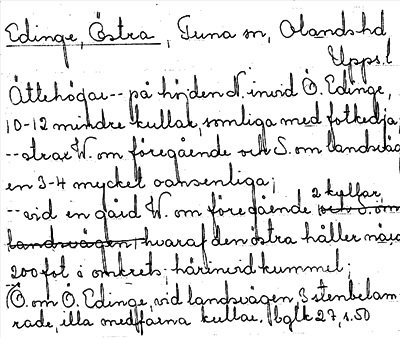 Edinge, Östra, Tuna sn, Olands hd
Upps. l
Ättehögar -- på höjden N. invid Ö. Edinge,
10-12 mindre kullar, somliga med fotkedja;
-- strax W. om föregående och S. om landsväg
en 3-4 mycket oansenliga;
2 kullar,
-- vid en gård W. om föregående och S. om
landsvägen, hvaraf den östra håller näs
200 fot i omkrets; härinvid kummel;
Ö. om Ö. Edinge, vid landsvägen 3 stenbelam
rade, illa medfarna kullar. Dbglk 27, s. 50